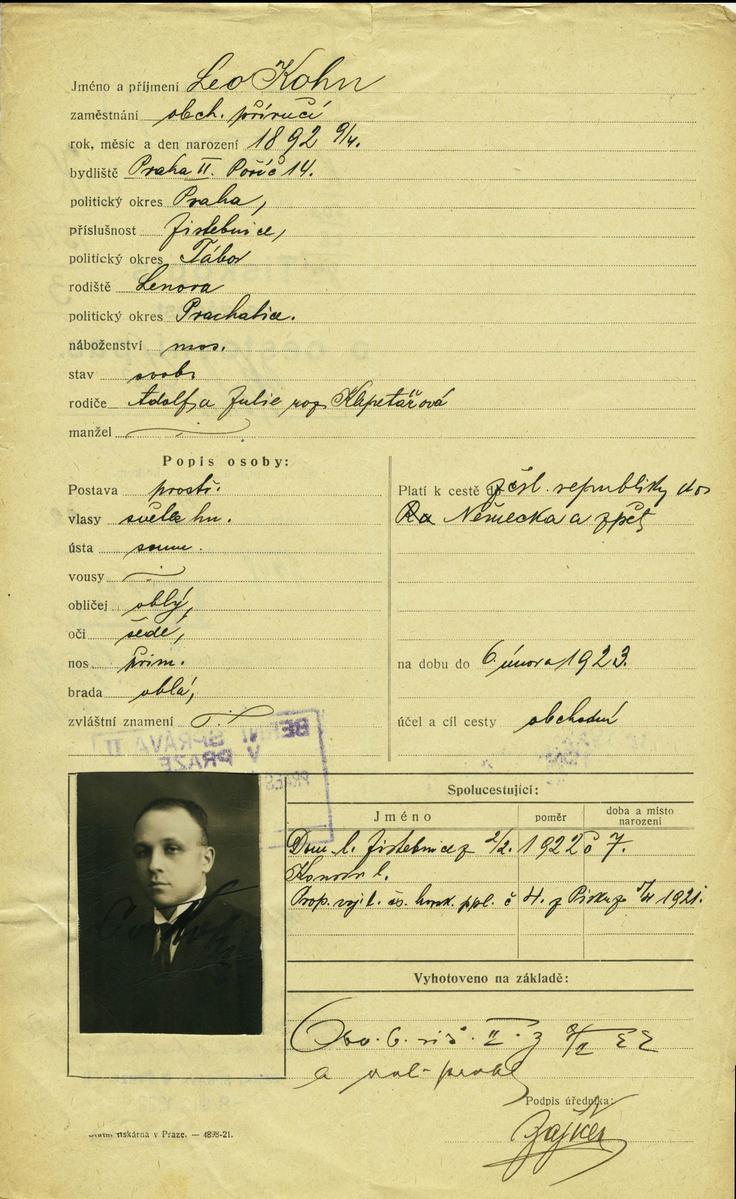 Jméno a příjmení Leo Kohn
zaměstnání obch. příručí
rok, měsíc a den narození 1892 9/4.
bydliště Praha II. Poříč 14.
politický okres Praha,
příslušnost Jistebnice,
politický okres Tábor
rodiště Lenora
politický okres Prachatice.
náboženství mos.
stav svob.
rodiče Adolf a Julie roz. Klapetářová
manžel
Popis osoby:
Postava prostř.
vlasy světle hn.
ústa soum.
vousy
obličej oblý,
oči šedé,
nos přim.
brada oblá,
zvláštní znamení
Platí k cestě do z čsl. republiky do
Německa a zpět
na dobu do 6. února 1923.
účel a cíl cesty obchodní
BERNÍ SPRÁVA II
V PRAZE
Spolucestující:
Jméno
poměr
doba a místo narození
Dom. l. Jistebnice z 2/2. 1922 č 7.
Konsen l.
Prop. voj. l. čs. horsk. ppl. č 4. z Písku z 1921.
Vyhotoveno na základě:
II. z
a
Podpis úředníka:
Státní tiskárna v Praze. — 4898-21.